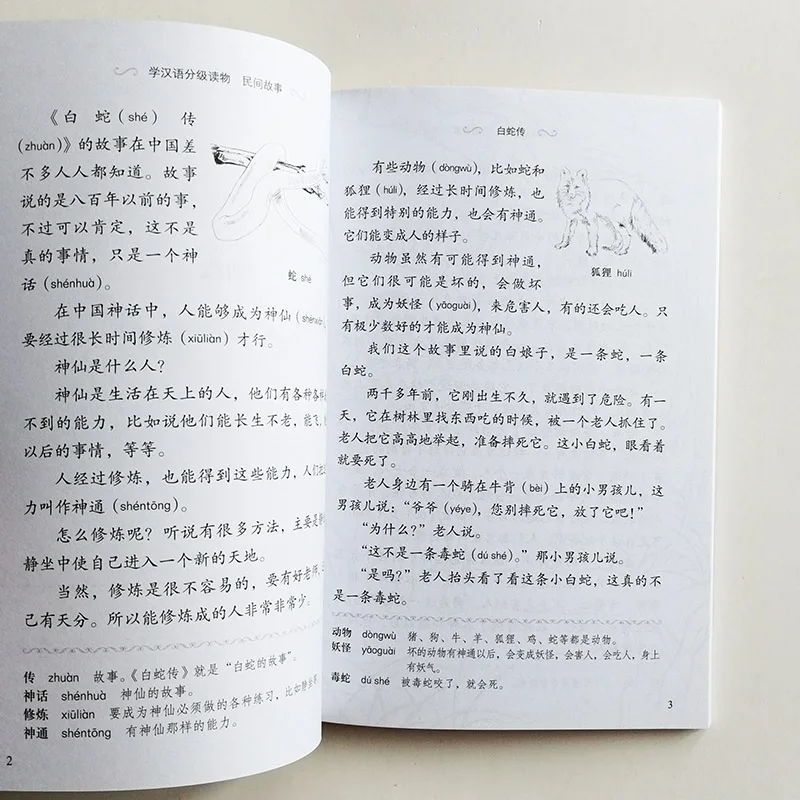 学汉语分级读物 民间故事
《白蛇(shé)传
(zhuàn)》的故事在中国差
不多人人都知道。故事
说的是八百年以前的事,
不过可以肯定,这不是
真的事情,只是一个神
话(shénhuà)。
蛇 shé
在中国神话中,人能够成为神仙
要经过很长时间修炼(xiūliàn)才行。
神仙是什么人?
神仙是生活在天上的人,他们有各种各样
不到的能力,比如说他们能长生不老,能飞,
以后的事情,等等。
人经过修炼,也能得到这些能力,人们
力叫作神通(shéntōng)。
怎么修炼呢?听说有很多方法,主要是
静坐中使自己进入一个新的天地。
当然,修炼是很不容易的,要有好老师,
己有天分。所以能修炼成的人非常非常少。
传 zhuàn 故事。《白蛇传》就是“白蛇的故事”。
神话 shénhuà 神仙的故事。
修炼 xiūliàn 要成为神仙必须做的各种练习,比如静坐
神通 shéntōng 有神仙那样的能力。
2
白蛇传
有些动物(dòngwù),比如蛇和
狐狸(húli),经过长时间修炼,也
能得到特别的能力,也会有神通。
它们能变成人的样子。
狐狸 húli
动物虽然有可能得到神通,
但它们很可能是坏的,会做坏
事,成为妖怪(yāoguài),来危害人,有的还会吃人。只
有极少数好的才能成为神仙。
我们这个故事里说的白娘子,是一条蛇,一条
白蛇。
两千多年前,它刚出生不久,就遇到了危险。有一
天,它在树林里找东西吃的时候,被一个老人抓住了。
老人把它高高地举起,准备摔死它。这小白蛇,眼看着
就要死了。
老人身边有一个骑在牛背(bèi)上的小男孩儿,这
男孩儿说:“爷爷(yéye),您别摔死它,放了它吧!”
“为什么?”老人说。
“这不是一条毒蛇(dú shé)。”那小男孩儿说。
“是吗?”老人抬头看了看这条小白蛇,这真的不
是一条毒蛇。
动物 dòngwù 猪、狗、牛、羊、狐狸、鸡、蛇等都是动物。
妖怪 yāoguài 坏的动物有神通以后,会变成妖怪,会害人,会吃人,身上
有妖气。
毒蛇 dú shé 被毒蛇咬了,就会死。
3